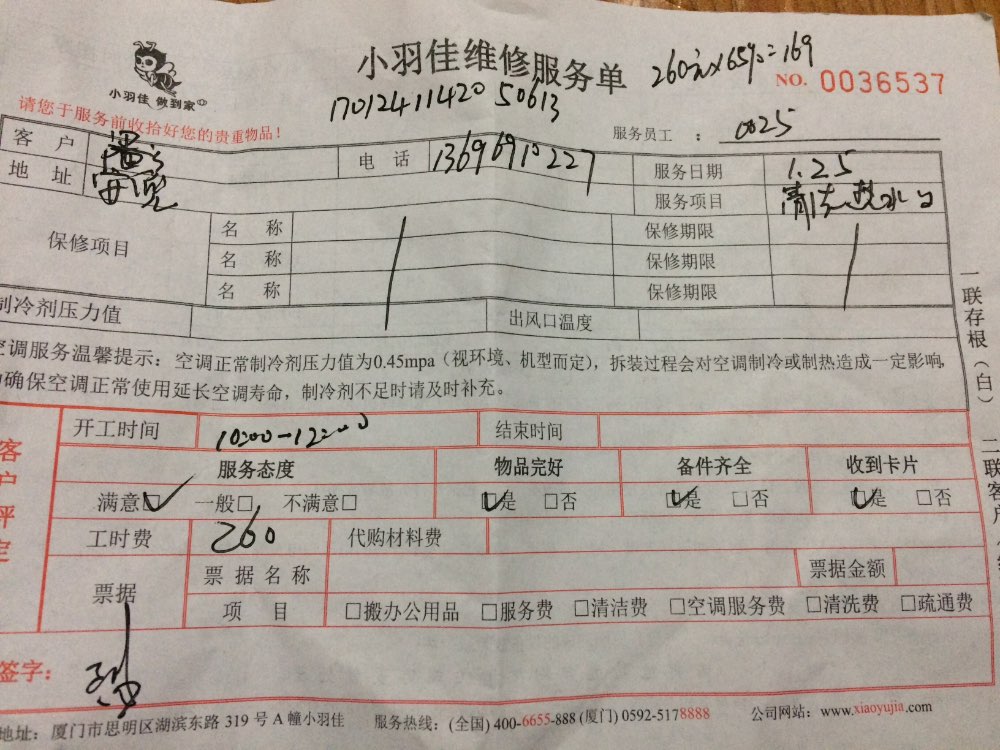 小羽佳 做到家
小羽佳维修服务单
260元×65%=169
NO. 0036537
17012411420 50613
请您于服务前收拾好您的贵重物品!
服务员工 : 0025
客 户
电 话 13696910227
服务日期 1.25
地 址
服务项目
保修项目
名 称 保修期限
名 称 保修期限
名 称 保修期限
制冷剂压力值 出风口温度
空调服务温馨提示: 空调正常制冷剂压力值为0.45mpa(视环境、机型而定), 拆装过程会对空调制冷或制热造成一定影响,
为确保空调正常使用延长空调寿命, 制冷剂不足时请及时补充。
一联存根(白)
二联客户
客户评定
开工时间 10:00-12:00 结束时间
服务态度 物品完好 备件齐全 收到卡片
满意□ 一般□ 不满意□ □是 □否 □是 □否 □是 □否
工时费 260 代购材料费
票据 票据名称 票据金额
项 目 □搬办公用品 □服务费 □清洁费 □空调服务费 □清洗费 □疏通费
签字:
地址: 厦门市思明区湖滨东路 319 号 A 幢小羽佳 服务热线: (全国) 400-6655-888 (厦门) 0592-5178888 公司网站: www.xiaoyujia.com